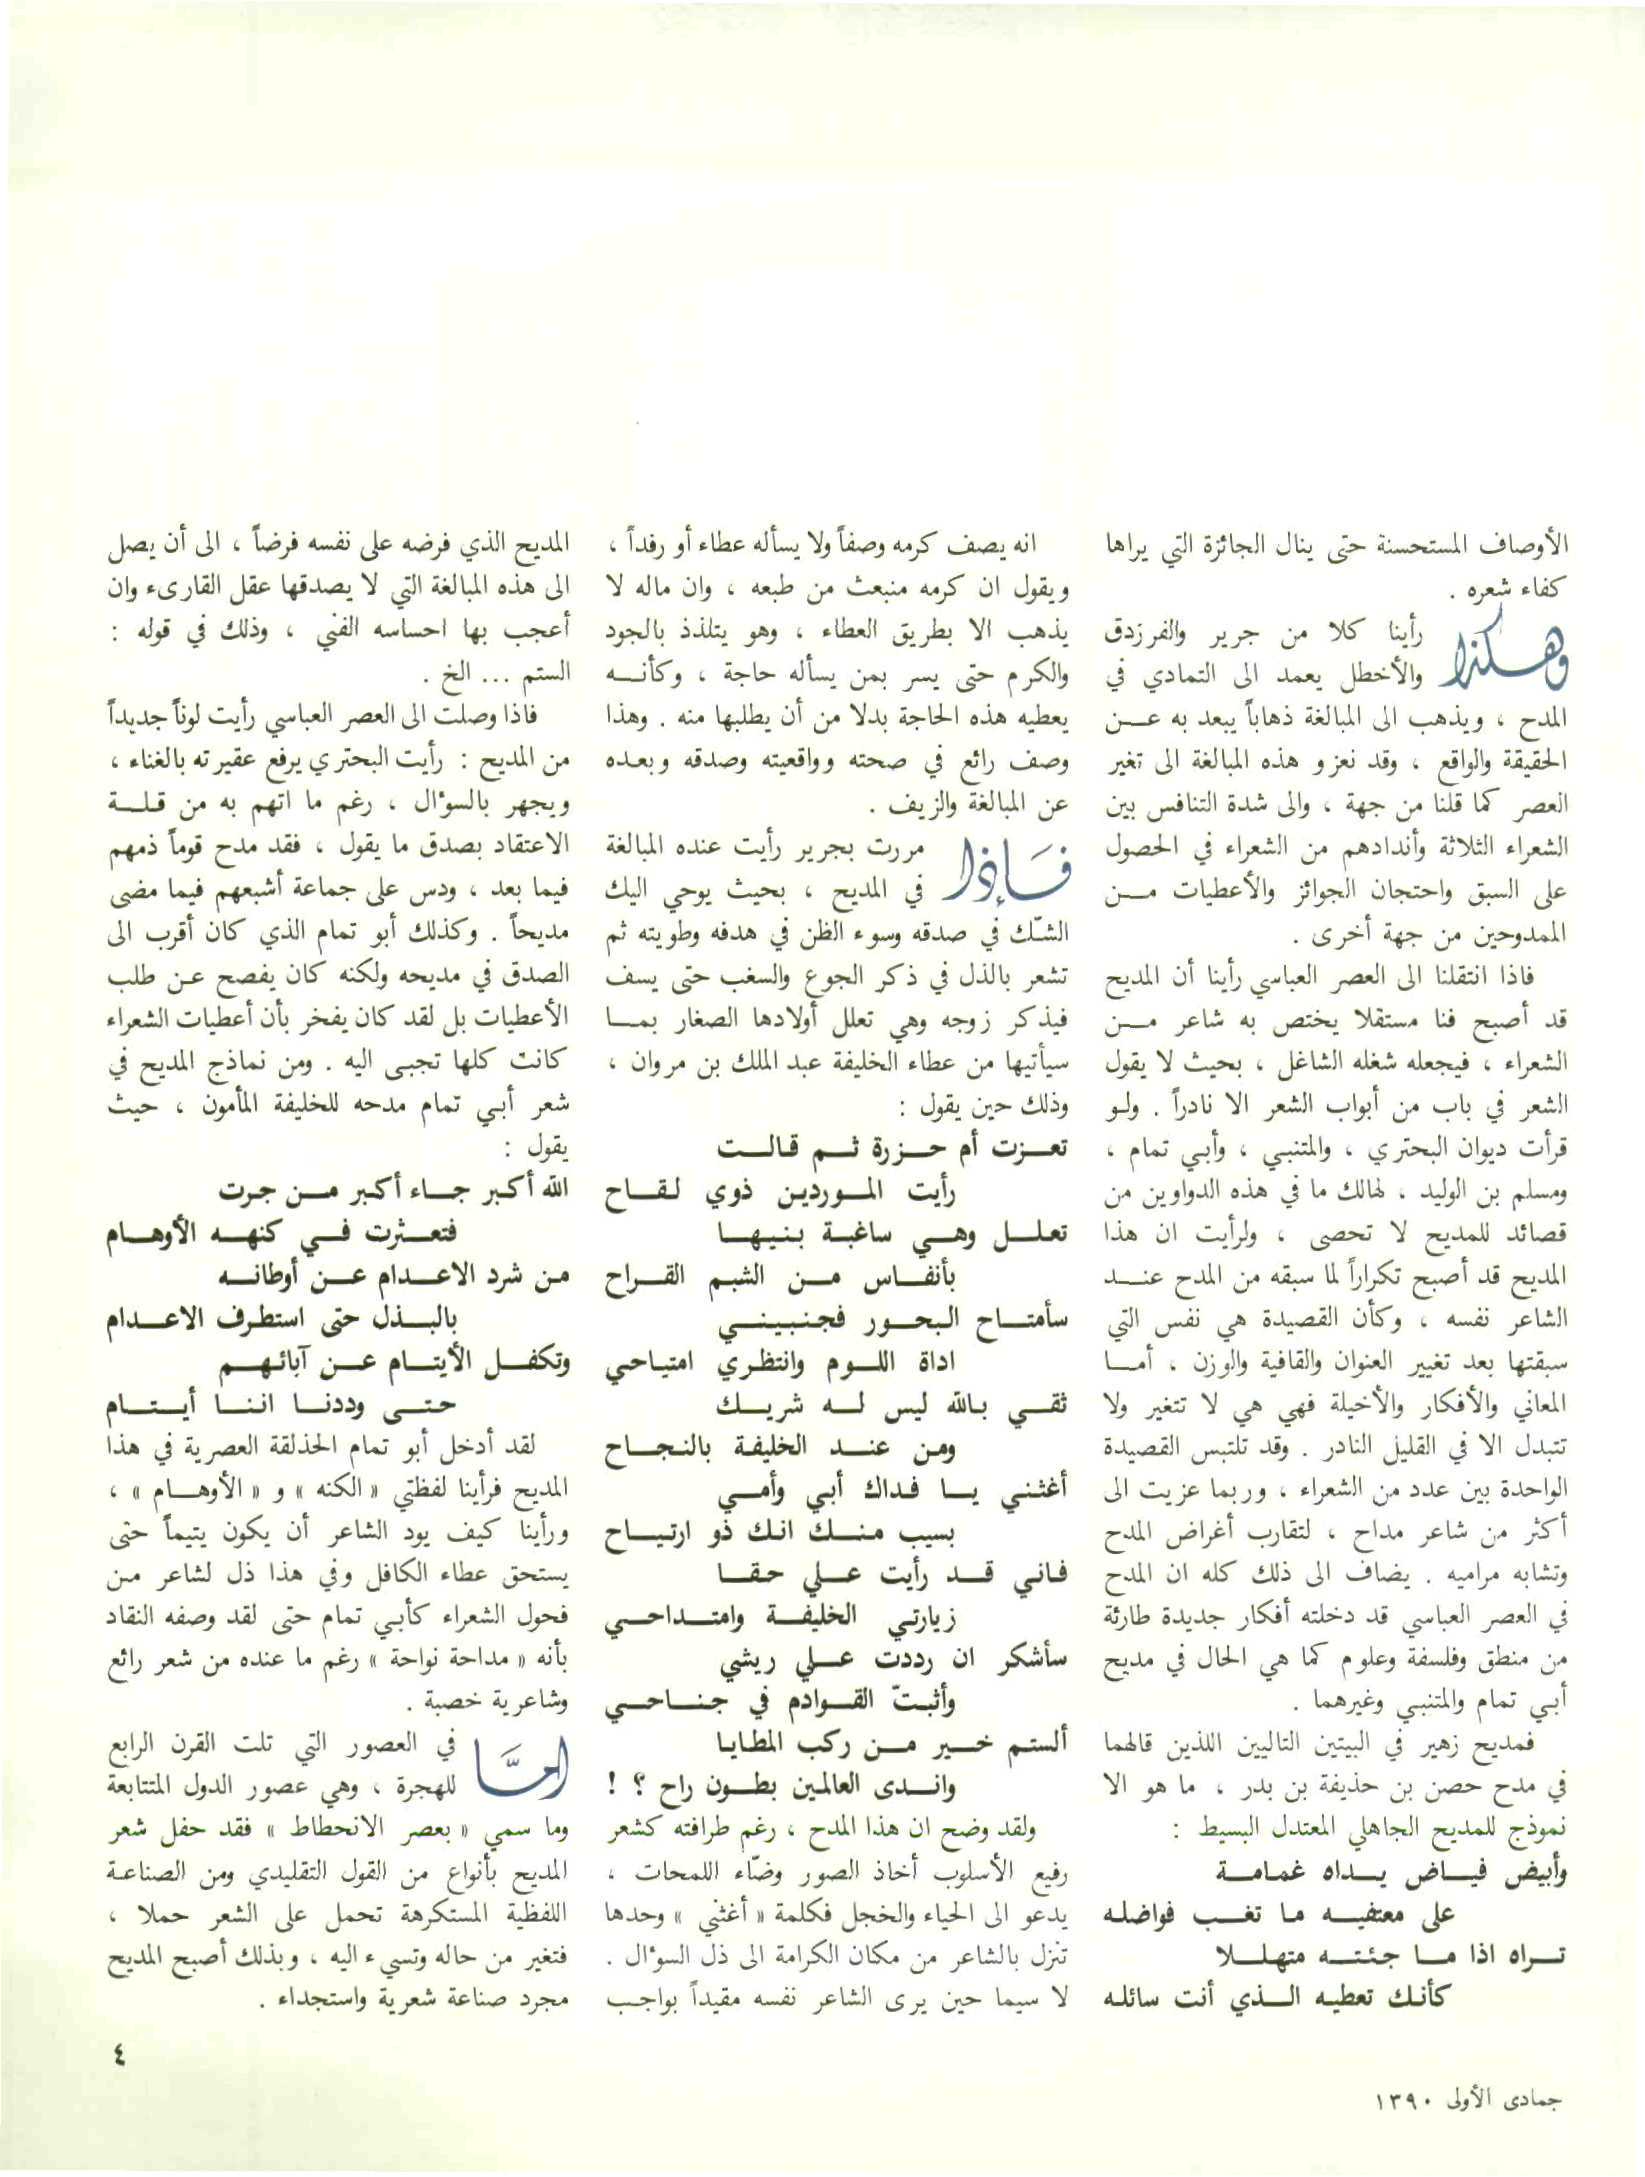 الأوصاف المستحسنة حتى ينال الجائزة التي يراها
كفاء شعره .
وهكذا رأينا كلا من جرير والفرزدق
والأخطل يعمد الى التمادي في
المدح ، ويذهب الى المبالغة ذهاباً يبعد به عـــن
الحقيقة والواقع ، وقد نعزو هذه المبالغة الى تغير
العصر كما قلنا من جهة ، والى شدة التنافس بين
الشعراء الثلاثة وأندادهم من الشعراء في الحصول
على السبق واحتجان الجوائز والأعطيات مـــن
الممدوحين من جهة أخرى .
فاذا انتقلنا الى العصر العباسي رأينا أن المديح
قد أصبح فنا مستقلا يختص به شاعر مـــن
الشعراء ، فيجعله شغله الشاغل ، بحيث لا يقول
الشعر في باب من أبواب الشعر الا نادراً . ولـو
قرأت ديوان البحتري ، والمتنبي ، وأبي تمام ،
ومسلم بن الوليد ، لهالك ما في هذه الدواوين من
قصائد للمديح لا تحصى ، ولرأيت ان هذا
المديح قد أصبح تكراراً لما سبقه من المدح عنـــد
الشاعر نفسه ، وكأن القصيدة هي نفس التي
سبقتها بعد تغيير العنوان والقافية والوزن ، أمـــا
المعاني والأفكار والأخيلة فهي هي لا تتغير ولا
تتبدل الا في القليل النادر . وقد تلتبس القصيدة
الواحدة بين عدد من الشعراء ، وربما عزيت الى
أكثر من شاعر مداح ، لتقارب أغراض المدح
وتشابه مراميه . يضاف الى ذلك كله ان المدح
في العصر العباسي قد دخلته أفكار جديدة طارئة
من منطق وفلسفة وعلوم كما هي الحال في مديح
أبي تمام والمتنبي وغيرهما .
فمديح زهير في البيتين التاليين اللذين قالهما
في مدح حصن بن حذيفة بن بدر ، ما هو الا
نموذج للمديح الجاهلي المعتدل البسيط :
وأبيض فيـــاض يـــداه غمامـــة
على معتفيـــه مـا تغـــب فواضله
تـــراه اذا مـــا جئتـــه متهلـــلا
كأنـك تعطيـه الـــذي أنت سائلـه
انه يصف كرمه وصفاً ولا يسأله عطاء أو رفداً ،
ويقول ان كرمه منبعث من طبعه ، وان ماله لا
يذهب الا بطريق العطاء ، وهو يتلذذ بالجود
والكرم حتى يسر بمن يسأله حاجة ، وكأنـــه
يعطيه هذه الحاجة بدلا من أن يطلبها منه . وهذا
وصف رائع في صحته وواقعيته وصدقه وبعـده
عن المبالغة والزيف .
فـإذا مررت بجرير رأيت عنده المبالغة
في المديح ، بحيث يوحي اليك
الشّك في صدقه وسوء الظن في هدفه وطويته ثم
تشعر بالذل في ذكر الجوع والسغب حتى يسف
فيذكر زوجه وهي تعلل أولادها الصغار بمـــا
سيأتيها من عطاء الخليفة عبد الملك بن مروان ،
وذلك حين يقول :
تعـــزت أم حـــزرة ثـــم قـالـــت
رأيت المـــوردين ذوي لقـــاح
تعلـــل وهـــي ساغبـة بنيهـــا
بأنفـــاس مـــن الشبم القـــراح
سأمتـــاح البحـــور فجنبينـــي
اداة اللـــوم وانتظري امتياحي
ثقـــي بـالله ليس لـــه شريـــك
ومن عنـــد الخليفـة بالنجـاح
أغثنـي يـــا فـداك أبي وأمـــي
بسيب منـــك انـك ذو ارتيـــاح
فـاني قـــد رأيت عـــلي حقـــا
زيارتي الخليفـــة وامتـــداحـــي
سأشكر ان رددت عـــلي ريشي
وأثبـتّ القـــوادم في جنـــاحـــي
ألستم خـــير مـــن ركب المطـايـا
وانـــدى العالمين بطـــون راح ؟ !
ولقد وضح ان هذا المدح ، رغم طرافته كشعر
رفيع الأسلوب أخاذ الصور وضّاء اللمحات ،
يدعو الى الحياء والخجل فكلمة « أغثني » وحدها
تنزل بالشاعر من مكان الكرامة الى ذل السؤال .
لا سيما حين يرى الشاعر نفسه مقيداً بواجـب
المديح الذي فرضه على نفسه فرضاً ، الى أن يصل
الى هذه المبالغة التي لا يصدقها عقل القارىء وان
أعجب بها احساسه الفني ، وذلك في قوله :
الستم ... الخ .
فاذا وصلت الى العصر العباسي رأيت لوناً جديداً
من المديح : رأيت البحتري يرفع عقيرته بالغناء ،
ويجهر بالسؤال ، رغم ما اتهم به من قلـــة
الاعتقاد بصدق ما يقول ، فقد مدح قوماً ذمهم
فيما بعد ، ودس على جماعة أشبعهم فيما مضى
مديحاً . وكذلك أبو تمام الذي كان أقرب الى
الصدق في مديحه ولكنه كان يفصح عـن طلب
الأعطيات بل لقد كان يفخر بأن أعطيات الشعراء
كانت كلها تجبى اليه . ومن نماذج المديح في
شعر أبي تمام مدحه للخليفة المأمون ، حيث
يقول :
الله أكـبر جـــاء أكـبر مـــن جـرت
فتعـــثرت فـــي كنهـــه الأوهـــام
مـن شرد الاعـــدام عـــن أوطانـــه
بالبـــذل حتى استطرف الاعـــدام
وتكفـــل الأيتـــام عـــن آبائهـــم
حتـــى وددنـــا اننـــا أيتـــام
لقد أدخل أبو تمام الحذلقة العصرية في هذا
المديح فرأينا لفظتي « الكنه » و « الأوهـــام » ،
ورأينا كيف يود الشاعر أن يكون يتيماً حتى
يستحق عطاء الكافل وفي هذا ذل لشاعر مـن
فحول الشعراء كأبـي تمام حتى لقد وصفه النقاد
بأنه « مداحة نواحة » رغم ما عنده من شعر رائع
وشاعرية خصبة .
أمـّا في العصور التي تلت القرن الرابع
للهجرة ، وهي عصور الدول المتتابعة
وما سمي « بعصر الانحطاط » فقد حفل شعر
المديح بأنواع من القول التقليدي ومن الصناعـة
اللفظية المستكرهة تحمل على الشعر حملا ،
فتغير من حاله وتسيء اليه ، وبذلك أصبح المديح
مجرد صناعة شعرية واستجداء .
٤
جمادى الأولى ١٣٩٠